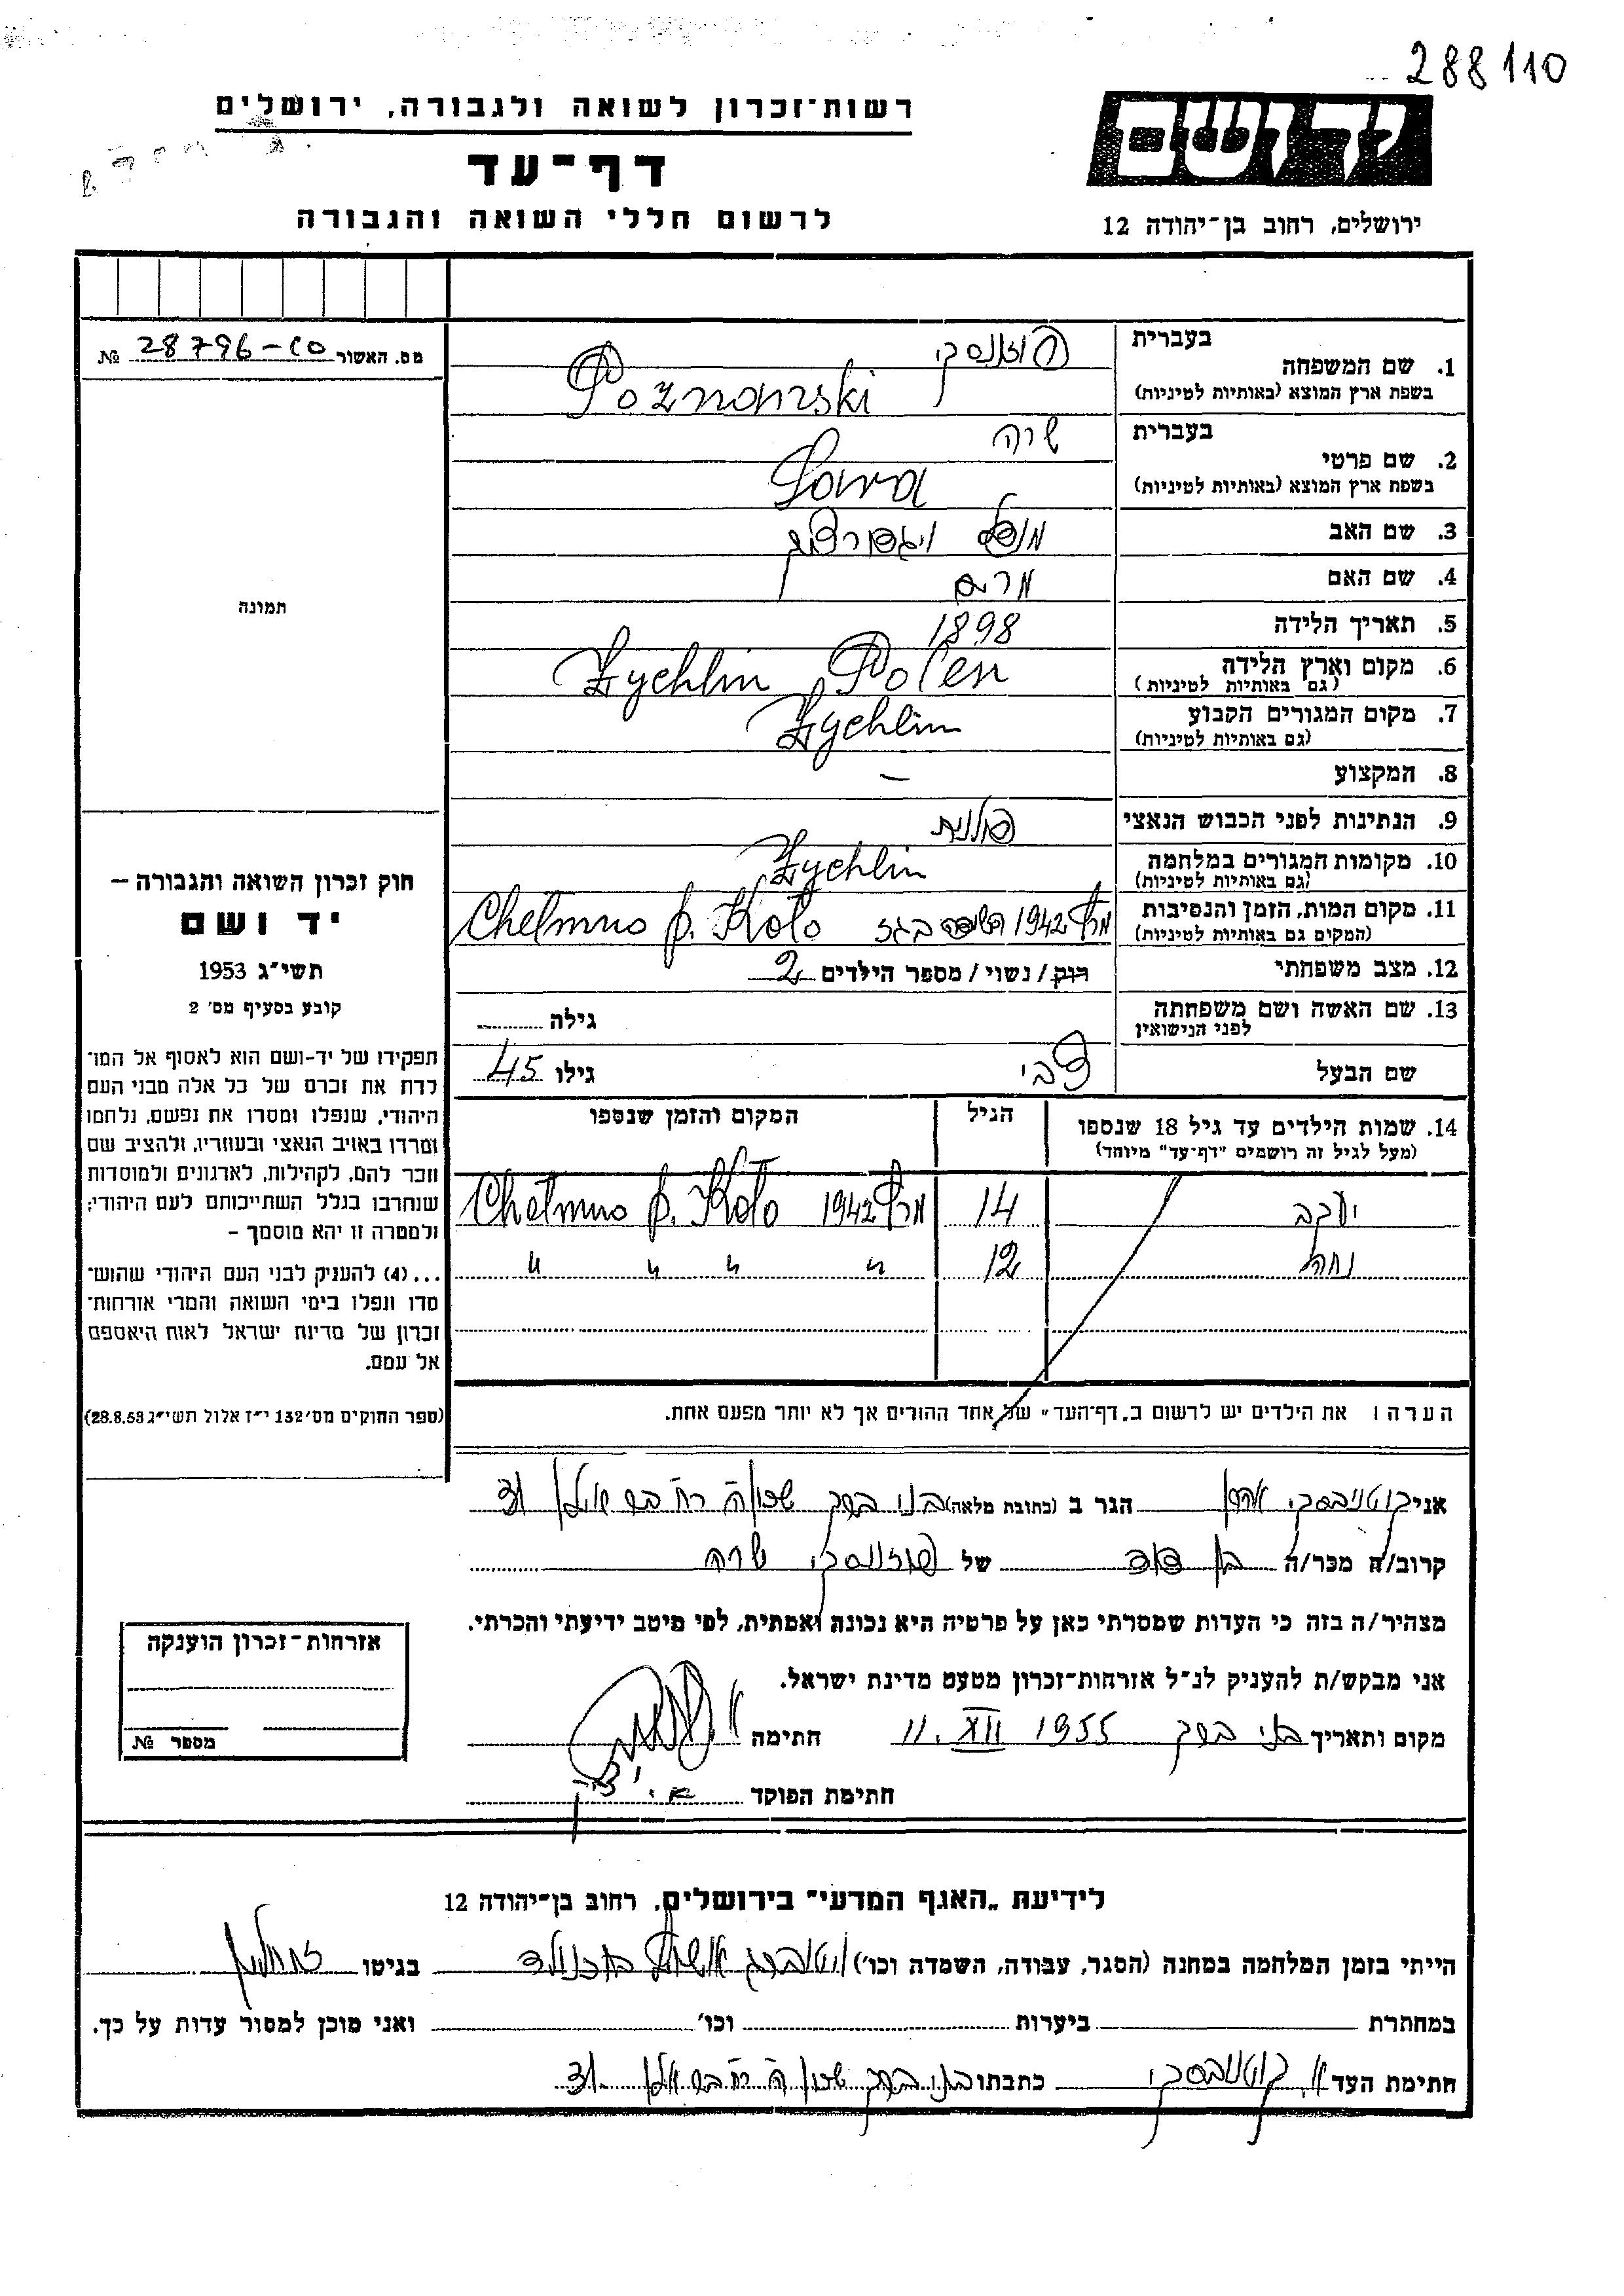 288110
רשות־זכרון לשואה ולגבורה, ירושלים
ידושם
דף־עד
לרשום חללי השואה והגבורה
ירושלים, רחוב בן־יהודה 12
מס. האשור 28796-co №
תמונה
חוק זכרון השואה והגבורה –
יד ושם
תשי״ג 1953
קובע בסעיף מס׳ 2
תפקידו של יד-ושם הוא לאסוף אל המו־
לדת את זכרם של כל אלה מבני העם
היהודי, שנפלו ומסרו את נפשם, נלחמו
ומרדו באויב הנאצי ובעוזריו, ולהציב שם
וזכר להם, לקהילות, לארגונים ולמוסדות
שנחרבו בגלל השתייכותם לעם היהודי;
ולמטרה זו יהא מוסמך –
...(4) להעניק לבני העם היהודי שהוש־
מדו ונפלו בימי השואה והמרי אזרחות־
זכרון של מדינת ישראל לאות היאספם
אל עמם.
(ספר החוקים מס׳ 132 י״ז אלול תשי״ג 28.8.53)
בעברית פוזננסקי
1. שם המשפחה
בשפת ארץ המוצא (באותיות לטיניות) Poznanski
בעברית שרה
2. שם פרטי
בשפת ארץ המוצא (באותיות לטיניות) Sara
3. שם האב
4. שם האם מרים
5. תאריך הלידה 1898
6. מקום וארץ הלידה Zychlin, Polen
(גם באותיות לטיניות)
7. מקום המגורים הקבוע Zychlin
(גם באותיות לטיניות)
8. המקצוע –
9. הנתינות לפני הכבוש הנאצי פולנית
10. מקומות המגורים במלחמה Zychlin
(גם באותיות לטיניות)
11. מקום המות, הזמן והנסיבות מרץ 1942 בגז Chelmno p. Koło
(המקום גם באותיות לטיניות)
12. מצב משפחתי רווק / נשוי / מספר הילדים 2
13. שם האשה ושם משפחתה לפני הנישואין גילה
שם הבעל צבי גילו 45
14. שמות הילדים עד גיל 18 שנספו הגיל המקום והזמן שנספו
(מעל לגיל זה רושמים ״דף־עד״ מיוחד)
יעקב 14 מרץ 1942 Chelmno p. Koło
נחל 12 " " " "
הערה: את הילדים יש לרשום ב„דף־העד״ של אחד ההורים אך לא יותר מפעם אחת.
אני קוטניבסקי אהרן הגר ב (כתובת מלאה) בני ברק שכון ה׳ רח׳
קרוב/ה מכר/ה בן דוד של פוזננסקי שרה
מצהיר/ה בזה כי העדות שמסרתי כאן על פרטיה היא נכונה ואמתית, לפי מיטב ידיעתי והכרתי.
אני מבקש/ת להעניק לנ״ל אזרחות־זכרון מטעם מדינת ישראל.
מקום ותאריך בני ברק 11. XII 1955 חתימה
חתימת הפוקד
אזרחות־זכרון הוענקה
מספר №
לידיעת „האגף המדעי״ בירושלים, רחוב בן־יהודה 12
הייתי בזמן המלחמה במחנה (הסגר, עבודה, השמדה וכו׳) בוכנולד בגיטו זיכלין
במחתרת ביערות וכו׳ ואני מוכן למסור עדות על כך.
חתימת העד א. קוטניבסקי כתבתו בני ברק שכון ה׳ רח׳